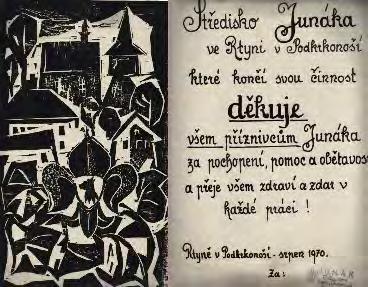 Středisko Junáka
ve Rtyni v Podkrkonoší
které končí svou činnost
děkuje
všem příznivcům Junáka
za pochopení, pomoc a obětavost
a přeje všem zdraví a zdar v
každé práci !
Rtyně v Podkrkonoší - srpen 1970.
Za:
JUNÁK